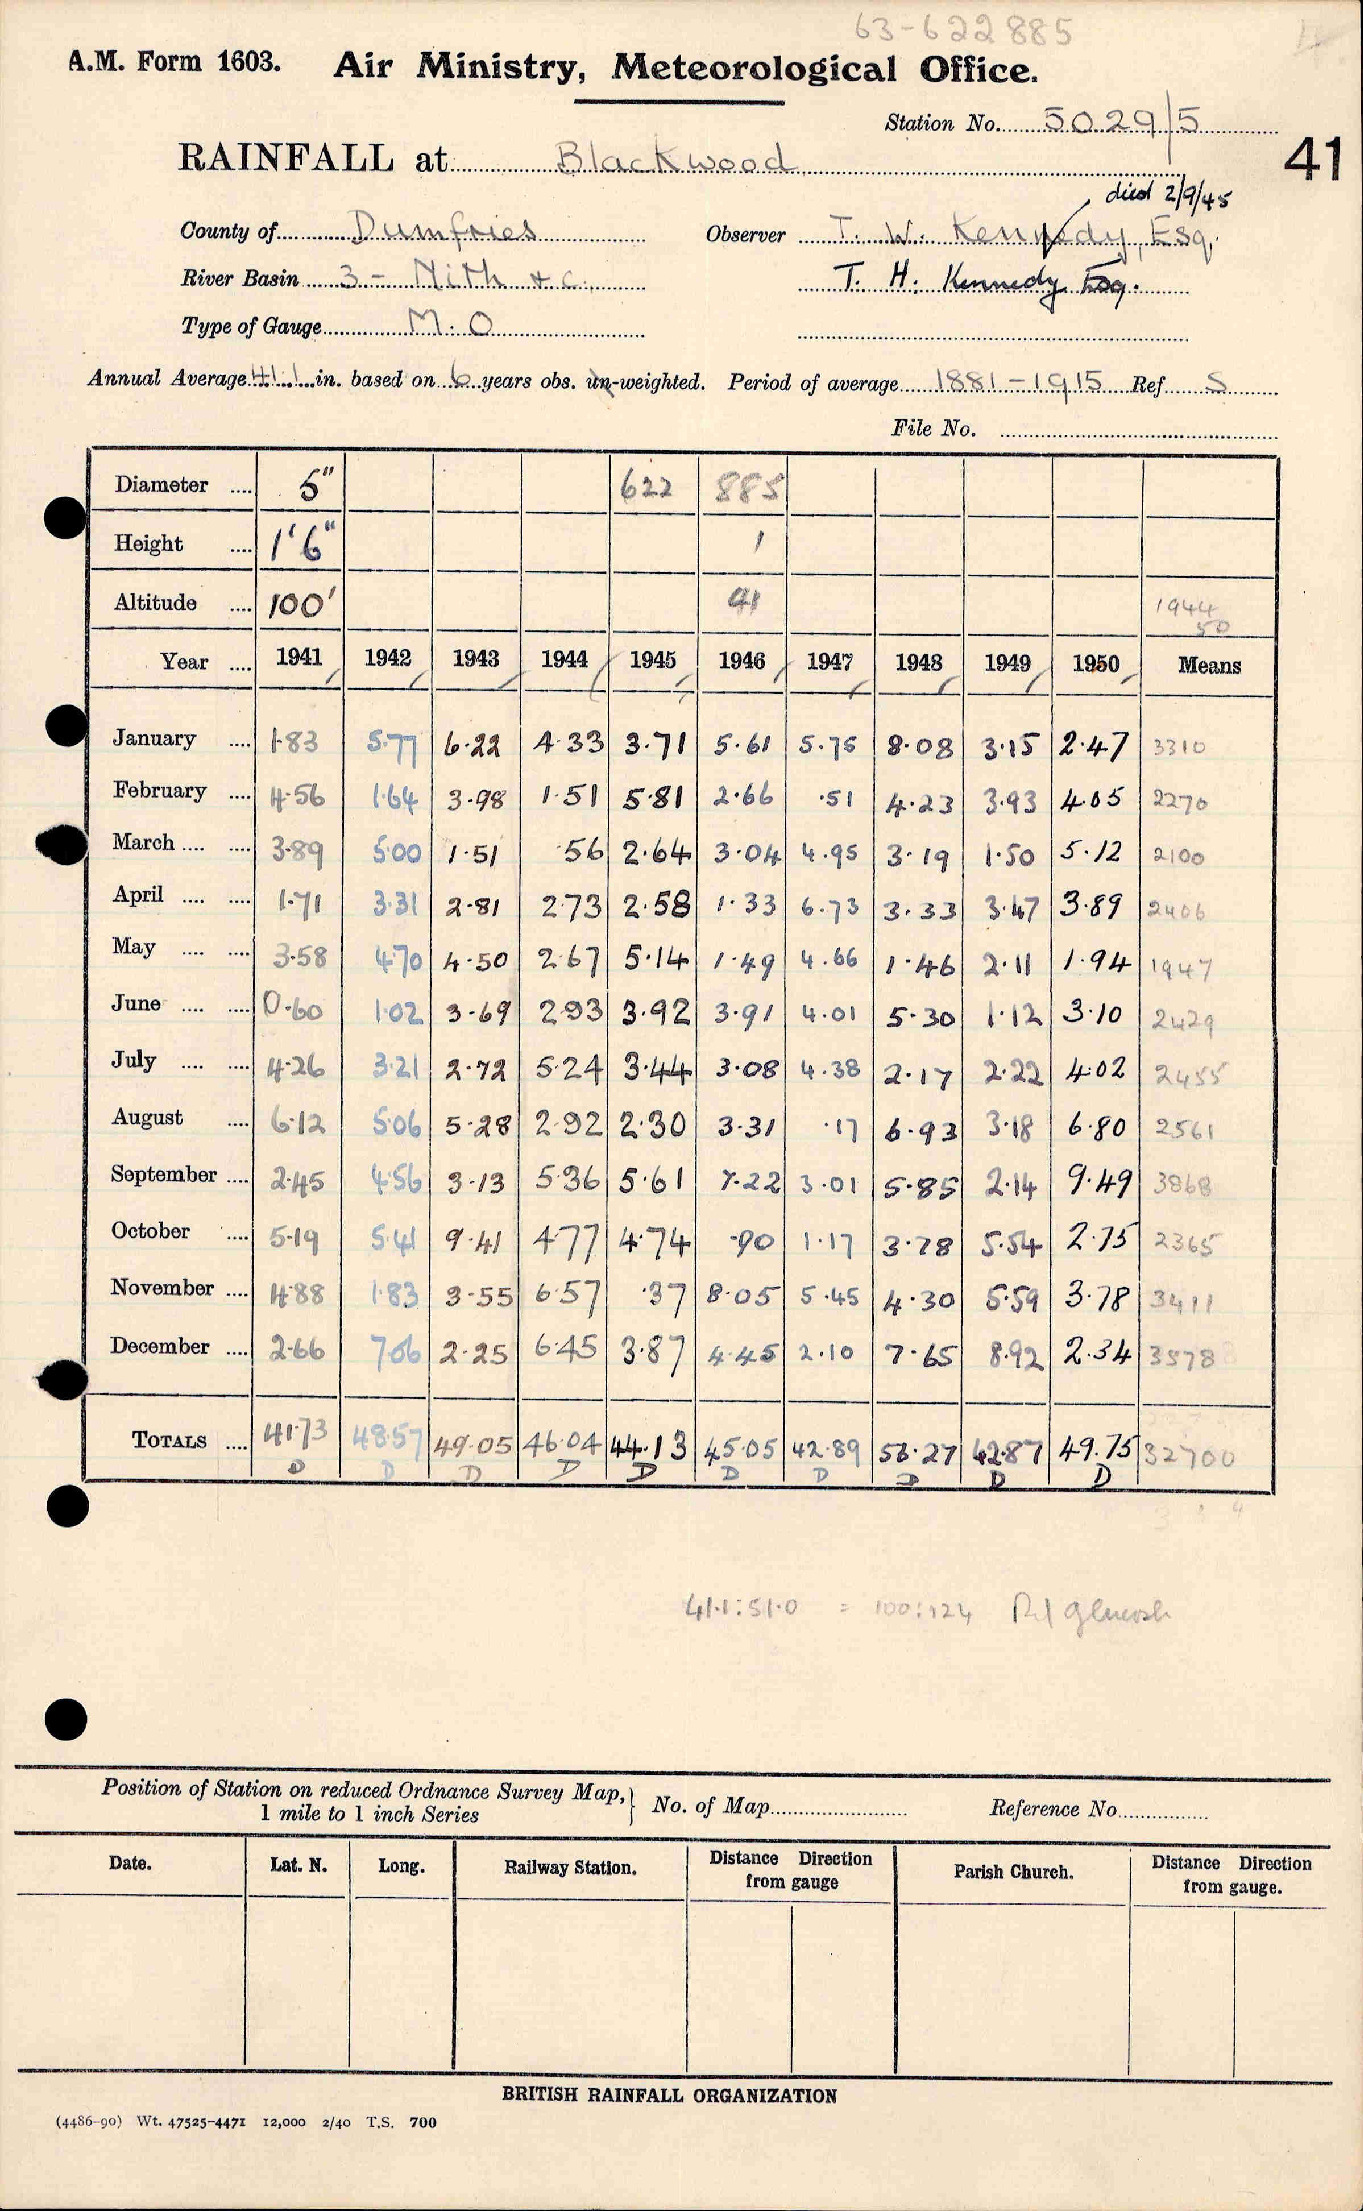 63-622885
A.M. Form 1603. Air Ministry, Meteorological Office.
Station No. 5029/5
RAINFALL at Blackwood
41
died 2/9/45
County of Dumfries Observer T. W. Kennedy, Esq.
River Basin 3 - Nith &c. T. H. Kennedy Esq.
Type of Gauge M.O
Annual Average 41.1 in. based on 6 years obs. un-weighted. Period of average 1881-1915 Ref S
File No.
Diameter .... 5" 622 885
Height .... 1'6" 1
Altitude .... 100' 91 1944 50
Year .... 1941 1942 1943 1944 1945 1946 1947 1948 1949 1950 Means
January .... 1.83 5.77 6.22 4.33 3.71 5.61 5.75 8.08 3.15 2.47 3310
February .... 4.56 1.64 3.98 1.51 5.81 2.66 .51 4.23 3.93 4.05 2270
March .... .... 3.89 5.00 1.51 .56 2.64 3.04 4.95 3.19 1.50 5.12 2100
April .... .... 1.71 3.31 2.81 2.73 2.58 1.33 6.73 3.33 3.47 3.89 2406
May .... .... 3.58 4.70 4.50 2.67 5.14 1.49 4.66 1.46 2.11 1.94 1947
June .... .... 0.60 1.02 3.69 2.93 3.92 3.91 4.01 5.30 1.12 3.10 2429
July .... .... 4.26 3.21 2.72 5.24 3.44 3.08 4.38 2.17 2.22 4.02 2455
August .... 6.12 5.06 5.28 2.92 2.30 3.31 .17 6.93 3.18 6.80 2561
September .... 2.45 4.56 3.13 5.36 5.61 7.22 3.01 5.85 2.14 9.49 3868
October .... 5.19 5.41 9.41 4.77 4.74 .90 1.17 3.78 5.54 2.75 2365
November .... 4.88 1.83 3.55 6.57 .37 8.05 5.45 4.30 5.59 3.78 3411
December .... 2.66 7.06 2.25 6.45 3.87 4.45 2.10 7.65 8.92 2.34 3578
TOTALS .... 41.73 48.57 49.05 46.04 44.13 45.05 42.89 56.27 42.87 49.75 32700
D D D D D D D D D D
41.1:51.0 = 100:124
Position of Station on reduced Ordnance Survey Map,
1 mile to 1 inch Series } No. of Map Reference No.
Date. Lat. N. Long. Railway Station. Distance Direction from gauge Parish Church. Distance Direction from gauge.
BRITISH RAINFALL ORGANIZATION
(4486-90) Wt. 47525-4471 12,000 2/40 T.S. 700